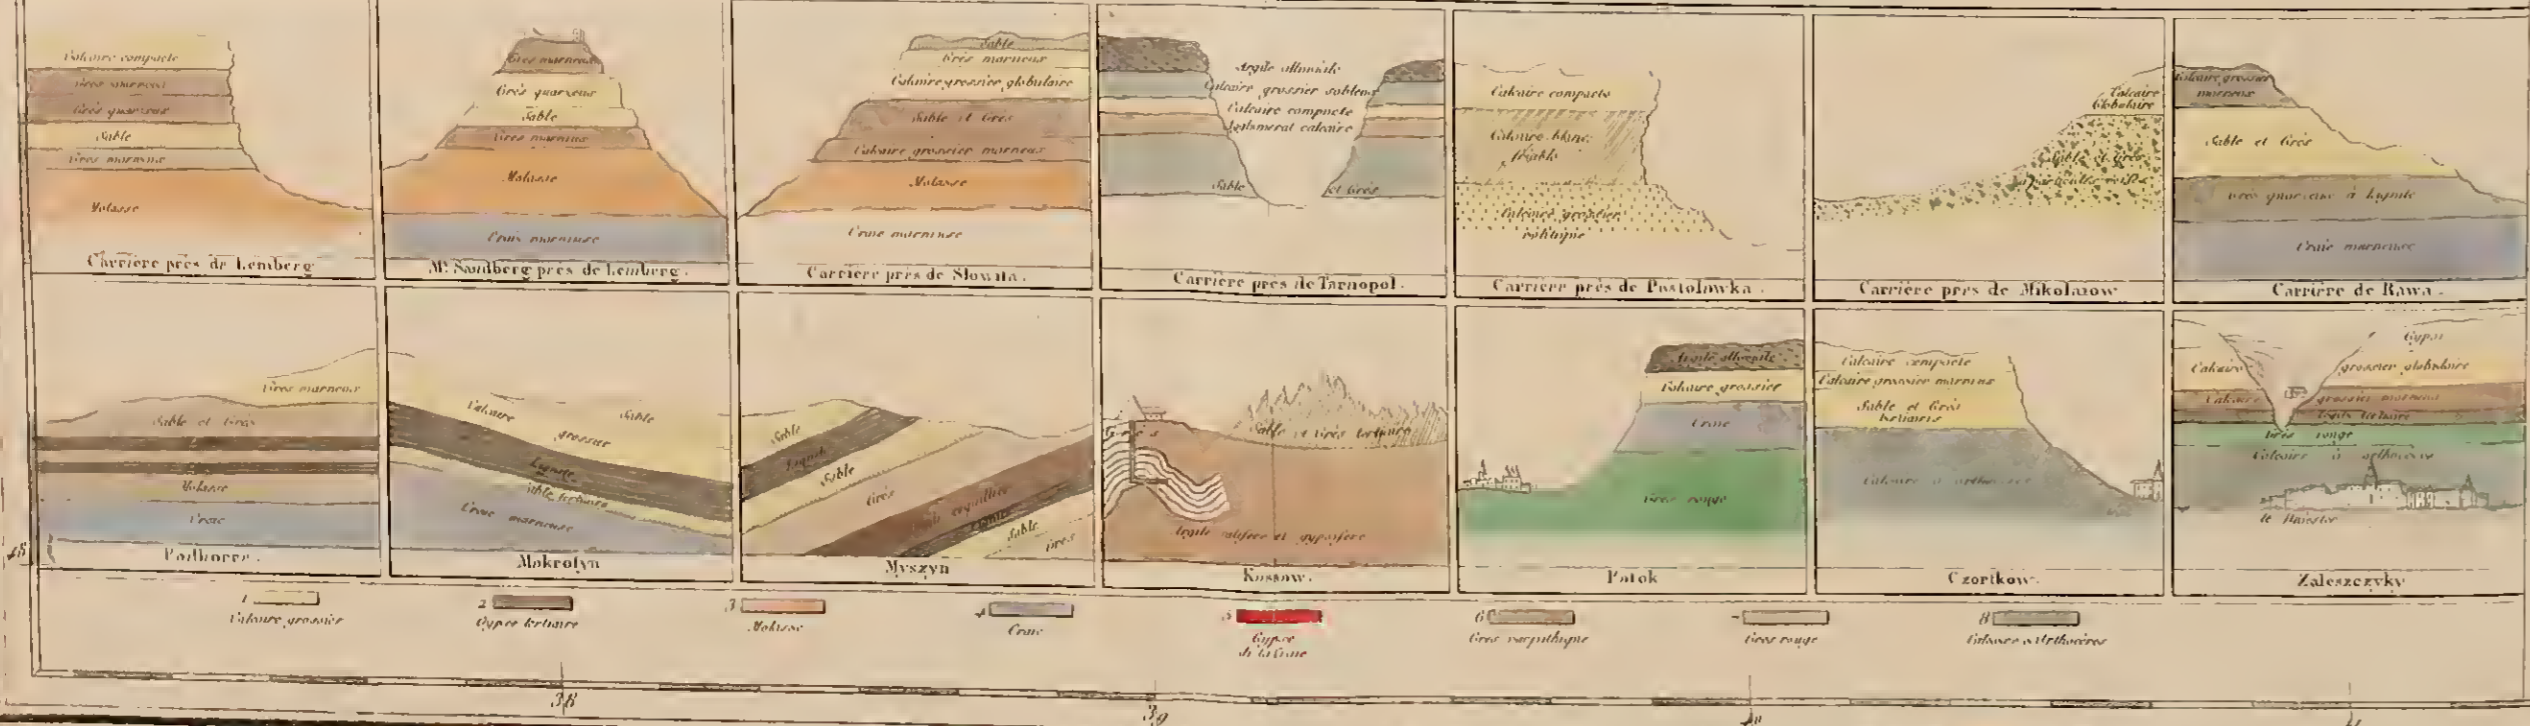 Calcaire compacte
Grès marneux
Grès quarzeux
Sable
Grès marneux
Molasse
Carrière près de Lemberg
Grès marneux
Grès quarzeux
Sable
Grès marneux
Molasse
Craie marneuse
Mt. Sandberg près de Lemberg.
Sable
Grès marneux
Calcaire grossier globulaire
Sable et Grès
Calcaire grossier marneux
Molasse
Craie marneuse
Carrière près de Slowita.
Argile alluviale
Calcaire grossier sableux
Calcaire compacte
Aglomerat calcaire
Sable et Grès
Carrière près de Tarnopol.
Calcaire compacte
Calcaire blanc
friable
Calcaire grossier
oolitique
Carrière près de Postolowka.
Calcaire
Globulaire
Sable et Grès
Carrière près de Mikolazow
Calcaire grossier
marneux
Sable et Grès
Grès quarzeux à Lignite
Craie marneuse
Carrière de Rawa.
Grès marneux
Sable et Grès
Molasse
Craie
Podhorce.
Calcaire grossier
Sable
Lignite
Sable tertiaire
Craie marneuse
Mokrotyn
Sable
Lignite
Sable
Grès
coquillier
Lignite
Sable
Grès
Myszyn
Sable et Grès tertiaire
Argile salifère et gypsifère
Kossow.
Argile alluviale
Calcaire grossier
Craie
Grès rouge
Potok
Calcaire compacte
Calcaire grossier marneux
Sable et Grès
tertiaires
Calcaire à orthocères
Czortkow.
Gypse
Calcaire grossier globulaire
Calcaire grossier marneux
Argile tertiaire
Grès rouge
Calcaire à orthocères
le Dniester
Zaleszczyky
1 Calcaire grossier
2 Gypse tertiaire
3 Molasse
4 Craie
5 Gypse
de la Craie
6 Grès carpathique
7 Grès rouge
8 Calcaire à Orthocères
48
38
39
40
41